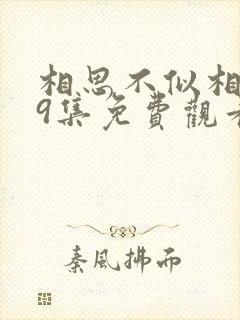 相思不似相
9集免費觀看
秦風拂而